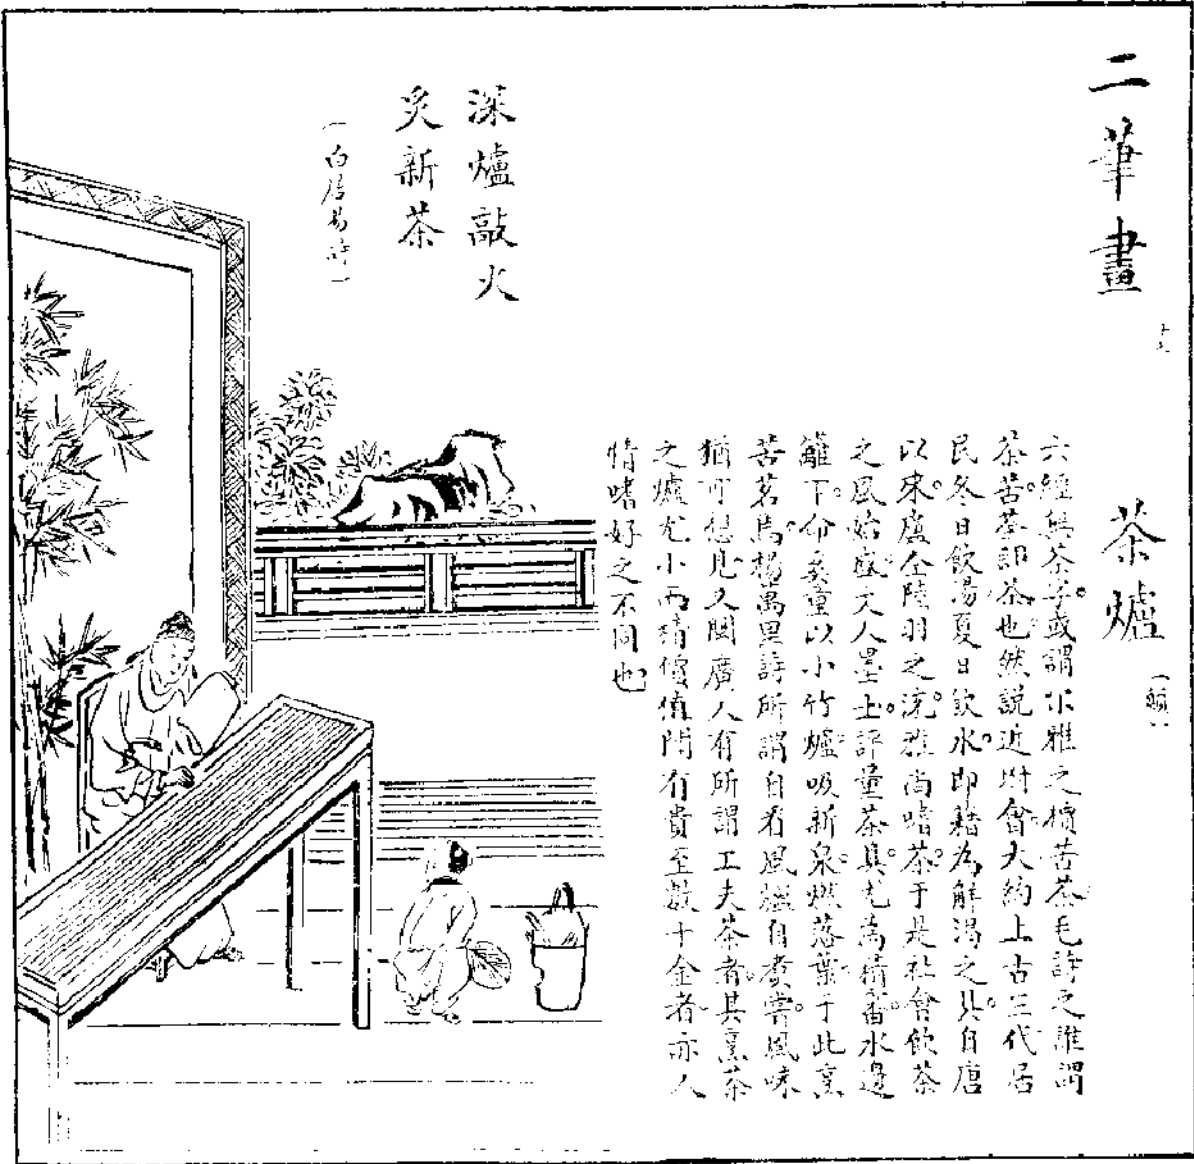 二筆畫
十七
茶爐
六經無茶字。或謂爾雅之檟苦荼。毛詩之誰謂
荼苦。荼即茶也。然說近附會。大約上古三代居
民。冬日飲湯。夏日飲水。即藉為解渴之具。自唐
以來。盧仝陸羽之流。雅尚嗜茶。于是社會飲茶
之風始盛。文人墨士。評量茶具。尤為精審。水邊
籬下。命奚童以小竹爐吸新泉。燃落葉。于此烹
苦茗焉。楊萬里詩所謂自看風爐自煮嘗。風味
猶可想見。又閩廣人有所謂工夫茶者。其烹茶
之爐尤小而精。價值間有貴至數十金者。亦人
情嗜好之不同也
深爐敲火
炙新茶
(白居易詩)